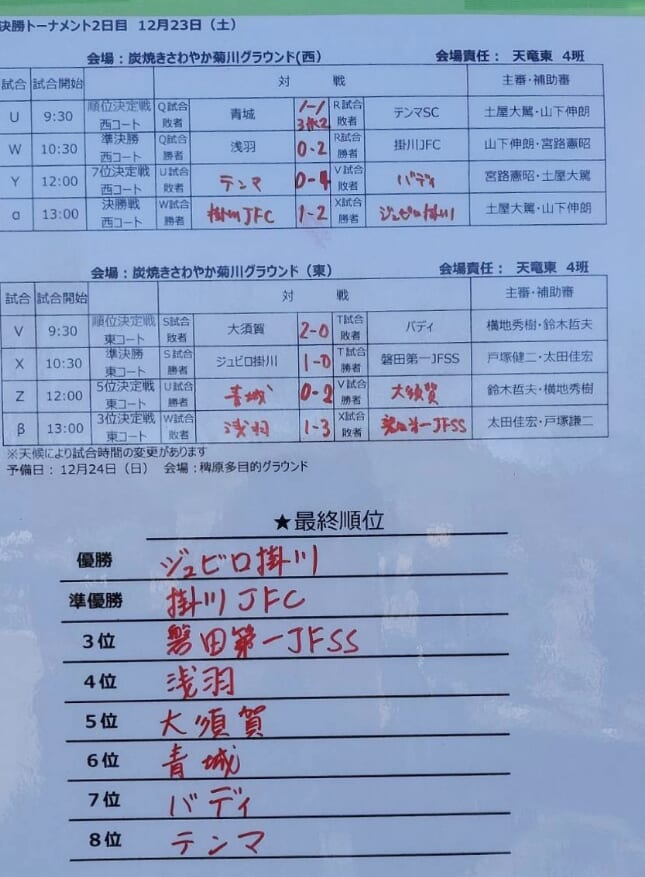 決勝トーナメント2日目 12月23日（土）
会場：炭焼きさわやか菊川グラウンド(西) 会場責任： 天竜東 4班
試合 試合開始 対 戦 主審・補助審
U 9:30 順位決定戦 西コート Q試合 敗者 青城 1-1 3PK2 R試合 敗者 テンマSC 土屋大篤・山下伸朗
W 10:30 準決勝 西コート Q試合 勝者 浅羽 0-2 R試合 勝者 掛川JFC 山下伸朗・宮路憲昭
Y 12:00 7位決定戦 西コート U試合 敗者 テンマ 0-4 V試合 敗者 バディ 宮路憲昭・土屋大篤
α 13:00 決勝戦 西コート W試合 勝者 掛川JFC 1-2 X試合 勝者 ジュビロ掛川 土屋大篤・山下伸朗
会場：炭焼きさわやか菊川グラウンド（東） 会場責任： 天竜東 4班
試合 試合開始 対 戦 主審・補助審
V 9:30 順位決定戦 東コート S試合 敗者 大須賀 2-0 T試合 敗者 バディ 横地秀樹・鈴木哲夫
X 10:30 準決勝 東コート S試合 勝者 ジュビロ掛川 1-0 T試合 勝者 磐田第一JFSS 戸塚健二・太田佳宏
Z 12:00 5位決定戦 東コート U試合 勝者 青城 0-2 V試合 勝者 大須賀 鈴木哲夫・横地秀樹
β 13:00 3位決定戦 東コート W試合 敗者 浅羽 1-3 X試合 敗者 磐田第一JFSS 太田佳宏・戸塚謙二
※天候により試合時間の変更があります
予備日：12月24日（日） 会場：稗原多目的グラウンド
★最終順位
優勝 ジュビロ掛川
準優勝 掛川JFC
3位 磐田第一JFSS
4位 浅羽
5位 大須賀
6位 青城
7位 バディ
8位 テンマ